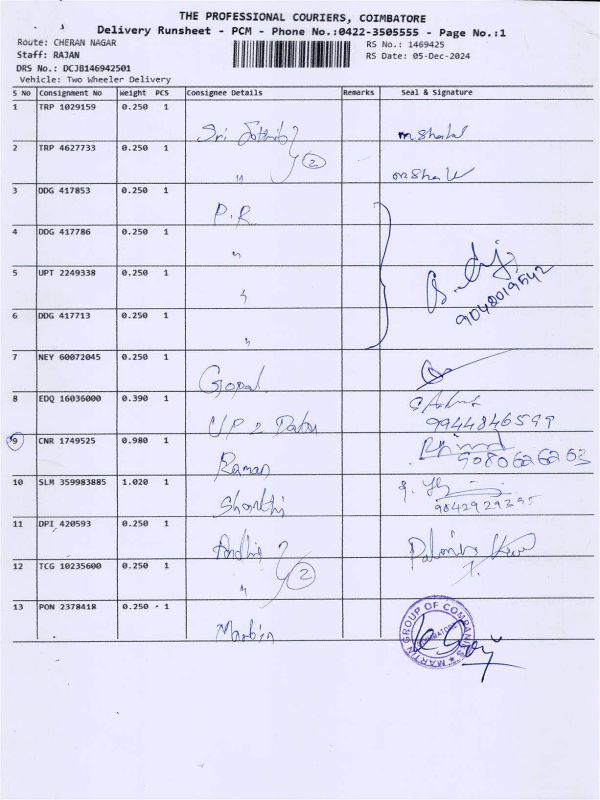 THE PROFESSIONAL COURIERS, COIMBATORE
Delivery Runsheet - PCM - Phone No.:0422-3505555 - Page No.:1
Route: CHERAN NAGAR
RS No.: 1469425
Staff: RAJAN
RS Date: 05-Dec-2024
DRS No.: DCJB146942501
Vehicle: Two Wheeler Delivery
S No Consignment No Weight PCS Consignee Details Remarks Seal & Signature
1 TRP 1029159 0.250 1 Sri
2 TRP 4627733 0.250 1 " 2
3 DDG 417853 0.250 1 P.R.
4 DDG 417786 0.250 1 "
5 UPT 2249338 0.250 1 "
9048019542
6 DDG 417713 0.250 1 "
7 NEY 60072045 0.250 1 Gopal
8 EDQ 16036000 0.390 1 UP 2
9944846599
9 CNR 1749525 0.980 1 Raman
9080626203
10 SLM 359983885 1.020 1 Shanthi
9042929395
11 DPI 420593 0.250 1
12 TCG 10235600 0.250 1 " 2
13 PON 2378418 0.250 1 Martin
MARTIN GROUP OF COMPANIES
COIMBATORE